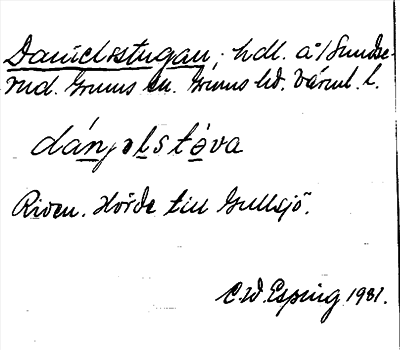 Danielsstugan, hdl. å 1/Sunds-
rud. Grums sn. Grums hd. Värml. l.
dánjəlstə̀va
Riven. Hörde till Gullsjö.
C.W. Esping 1931.